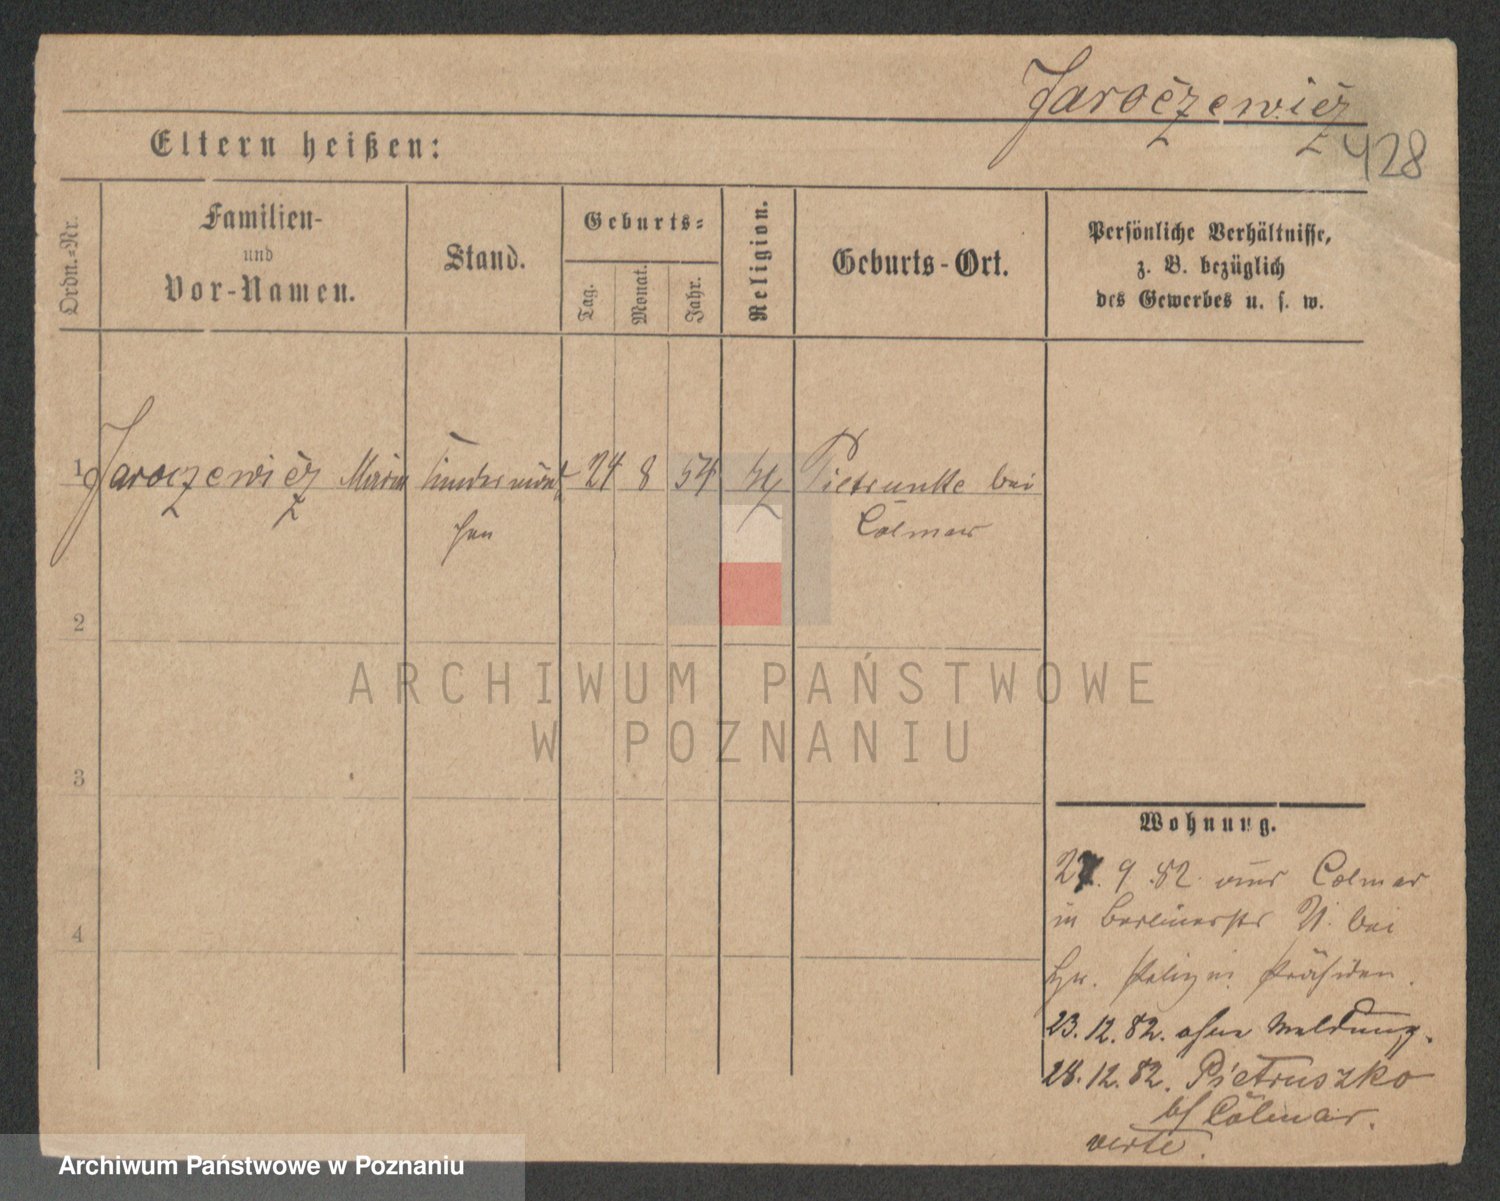 Jaroczewicz
428
Eltern heißen:
Ordn.-Nr.
Familien-
und
Vor-Namen.
Stand.
Geburts-
Tag.
Monat.
Jahr.
Religion.
Geburts-Ort.
Persönliche Verhältnisse,
z. B. bezüglich
des Gewerbes u. s. w.
1 Jaroczewicz Maria Kindermäd 24 8 54 Pietrunke bei
chen Colmar
2
ARCHIWUM PAŃSTWOWE
W POZNANIU
3
Wohnung.
9. 82. aus Colmar
4
in Berlinerstr bei
Hr. Polizei Präsiden.
23. 12. 82. ohne Meldung.
28. 12. 82. Pietruszko
b/ Colmar.
verte.
Archiwum Państwowe w Poznaniu